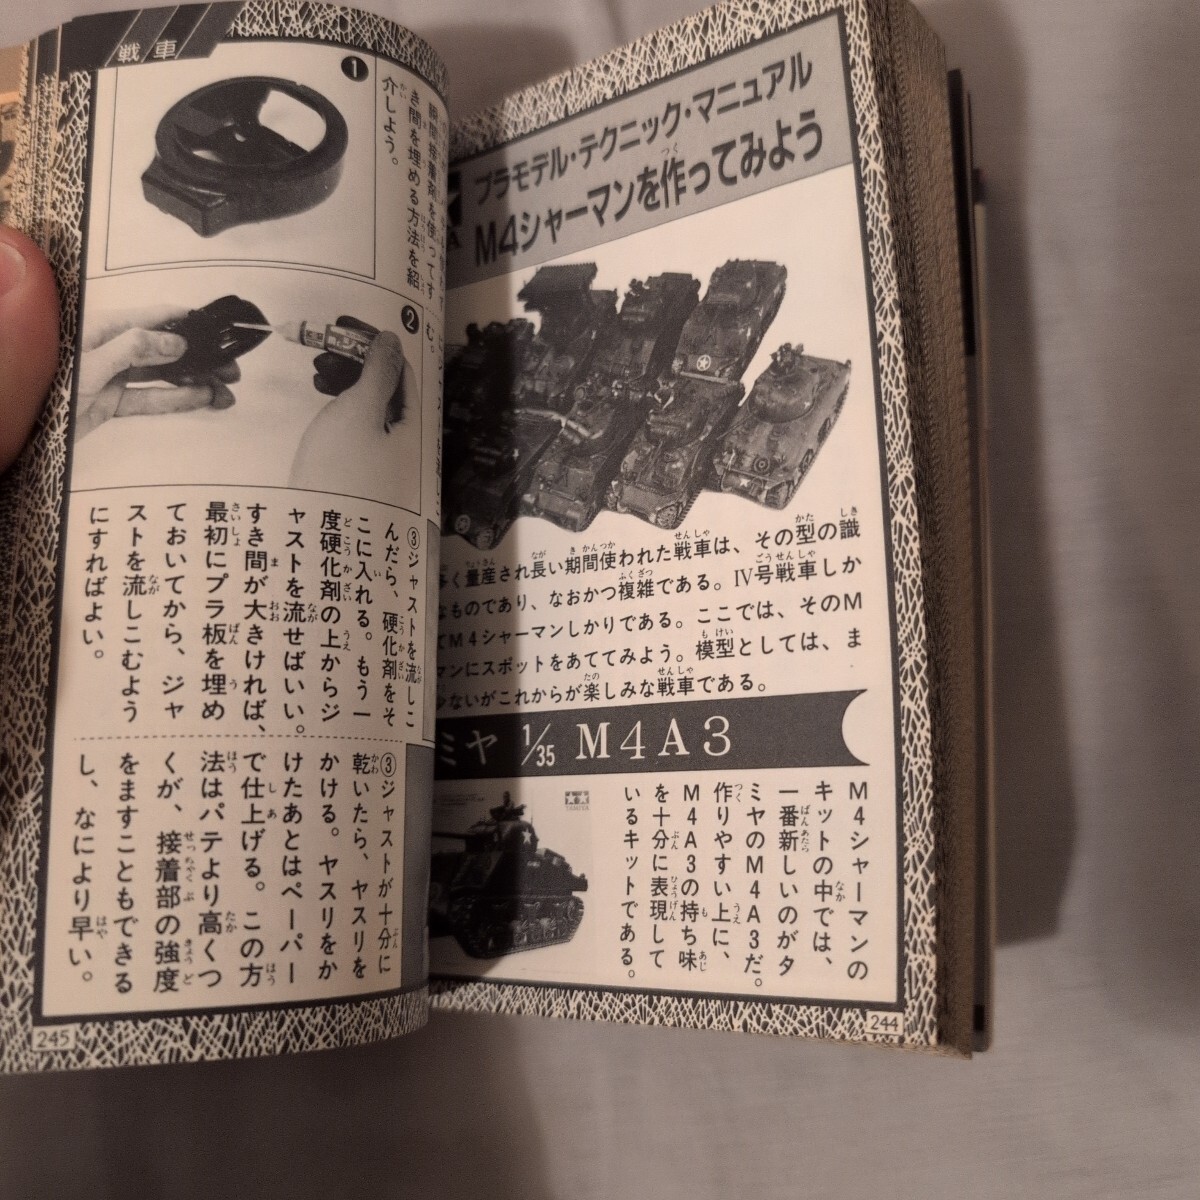 プラモデル・テクニック・マニュアル
M4シャーマンを作ってみよう
く量産され長い期間使われた戦車は、その型の識
なものであり、なおかつ複雑である。Ⅳ号戦車しか
てM4シャーマンしかりである。ここでは、そのM
マンにスポットをあててみよう。模型としては、ま
少ないがこれからが楽しみな戦車である。
ミヤ 1/35 M4A3
M4シャーマンの
キットの中では、
一番新しいのがタ
ミヤのM4A3だ。
作りやすい上に、
M4A3の持ち味
を十分に表現して
いるキットである。
TAMIYA
244
戦車
1
瞬間接着剤を使ってす
き間を埋める方法を紹
介しよう。
む。
2
③ジャストを流しこ
んだら、硬化剤をそ
こに入れる。もう一
度硬化剤の上からジ
ャストを流せばいい。
すき間が大きければ、
最初にプラ板を埋め
ておいてから、ジャ
ストを流しこむよう
にすればよい。
③ジャストが十分に
乾いたら、ヤスリを
かける。ヤスリをか
けたあとはペーパー
で仕上げる。この方
法はパテより高くつ
くが、接着部の強度
をますこともできる
し、なにより早い。
245